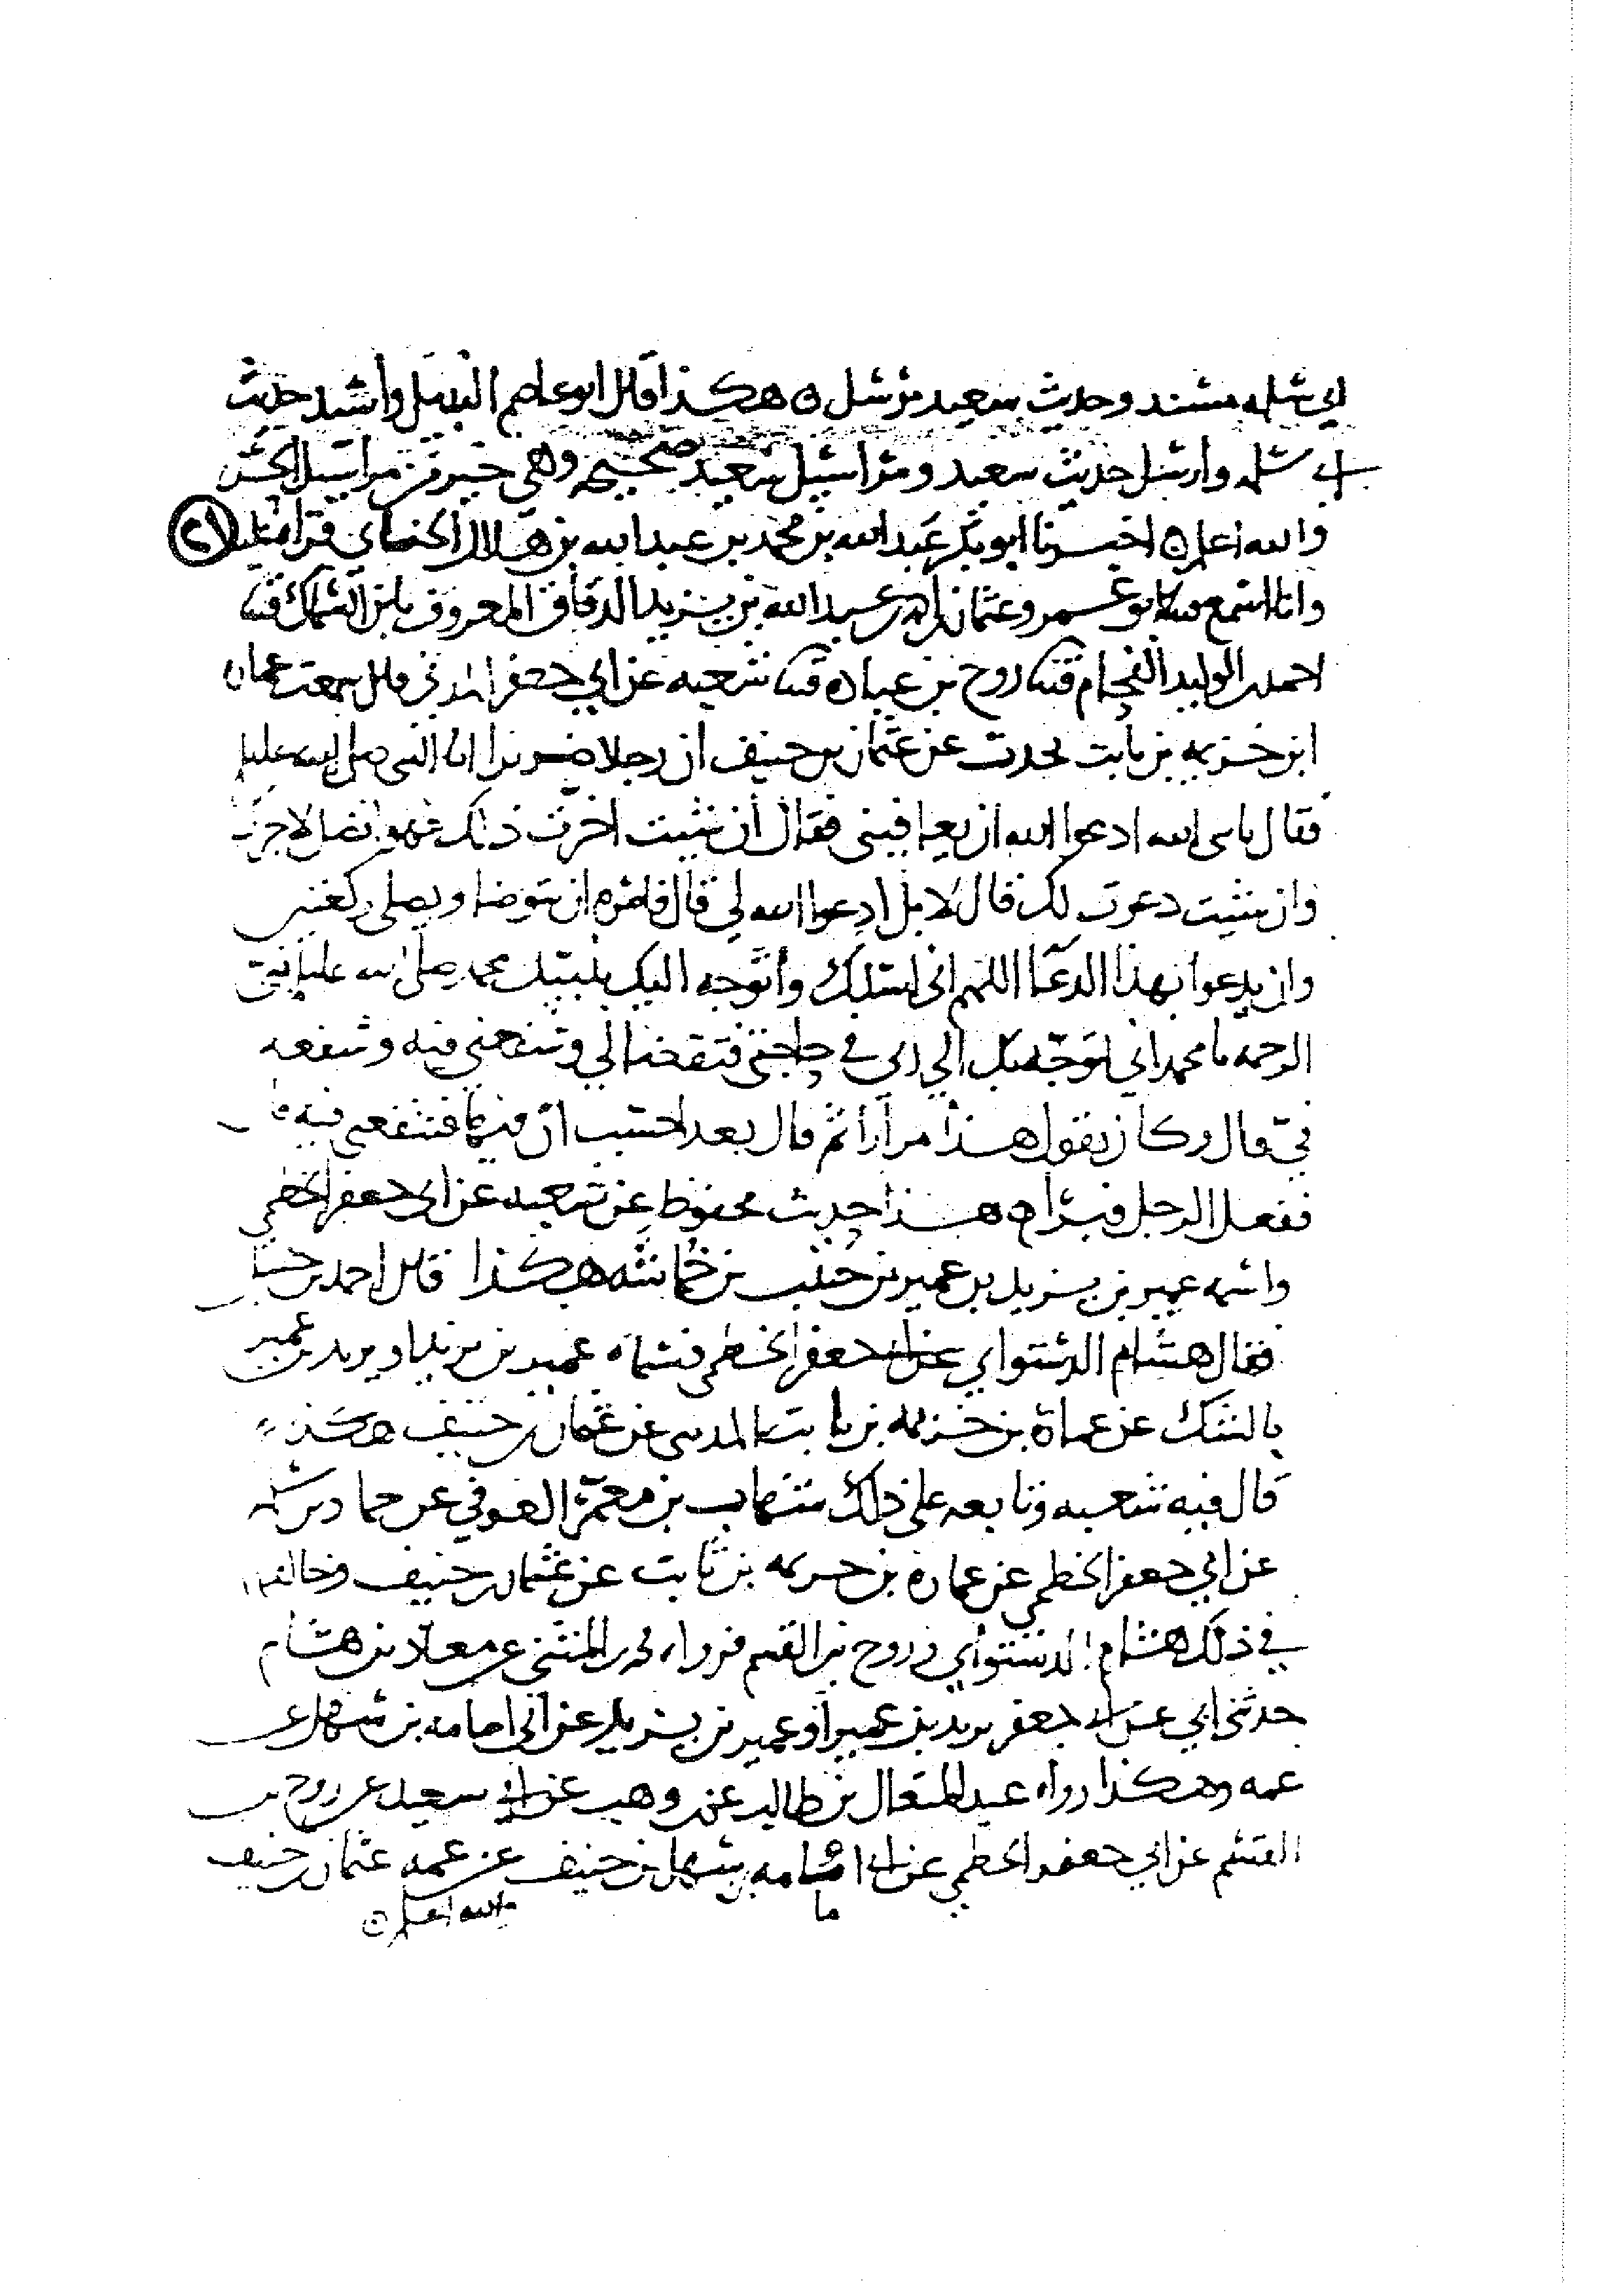 ابي سلمه مسند وحديث سعيد مرسل ه هكذا قال ابو عاصم النبيل وأسند حديث
ابي سلمه وارسل حديث سعيد ومراسيل سعيد صحيحه وهي خير من مراسيل الحسن
والله اعلم ه اخبرنا ابو بكر عبد الله بن محمد بن عبد الله بن هلال الحنماي قراة عليه ٢١
وانا اسمع ابو عمرو عثمان بن احمد بن عبد الله بن يزيد الدقاق المعروف بابن السماك قثنا
احمد بن الوليد الفحام قثنا روح بن عبادة قثنا شعبه عن ابي جعفر المدني قال سمعت عمارة
ابن خزيمه بن ثابت يحدث عن عثمان بن حنيف ان رجلا ضريرا اتا النبي صلى الله عليه
فقال يا نبي الله ادعوا الله ان يعافيني فقال ان شيت اخرت ذلك فهو افضل لاخرتك
وان شيت دعوت لك قال لا بل ادعوا الله لي قال فامره ان يتوضا ويصلي ركعتين
وان يدعوا بهذا الدعا اللهم اني اسلك وأتوجه اليك بنبيك محمد صلى الله عليه نبي
الرحمه يا محمد اني اتوجه بك الي ربي في حاجتي فتقضا لي وتشفعني فيه وتشفعه
فيّ قال وكان يقول هذا مرارا ثم قال بعد احسب ان فيها فتشفعني فيه قال
ففعل الرجل فبرا ه هذا حديث محفوظ عن شعبه عن ابي جعفر الخطمي
واسمه عمير بن يزيد بن عمير بن حبيب بن خماشه هكذا قال احمد بن حنبل
فقال هشام الدستواي عن ابي جعفر الخطمي فسماه عمير بن يزيد او يزيد بن عمير
بالشك عن عمارة بن خزيمه بن ثابت المدني عن عثمان بن حنيف هكذا
قال فيه شعبه وتابعه على ذلك شهاب بن معمر العوفي عن حماد بن سلمه
عن ابي جعفر الخطمي عن عمارة بن خزيمه بن ثابت عن عثمان بن حنيف وخالفهما
في ذلك هشام الدستواي و روح بن القسم فرواه محمد بن المثنى عن معاذ بن هشام
حدثني ابي عن ابي جعفر يزيد بن عمير او عمير بن يزيد عن ابي امامه بن سهل عن
عمه وهكذا رواه عبد المتعال بن طالب عن بن وهب عن ابي سعيد عن روح بن
القسم عن ابي جعفر الخطمي عن ابي امامه بن سهل بن حنيف عن عمه عثمان بن حنيف
ما
والله اعلم ه